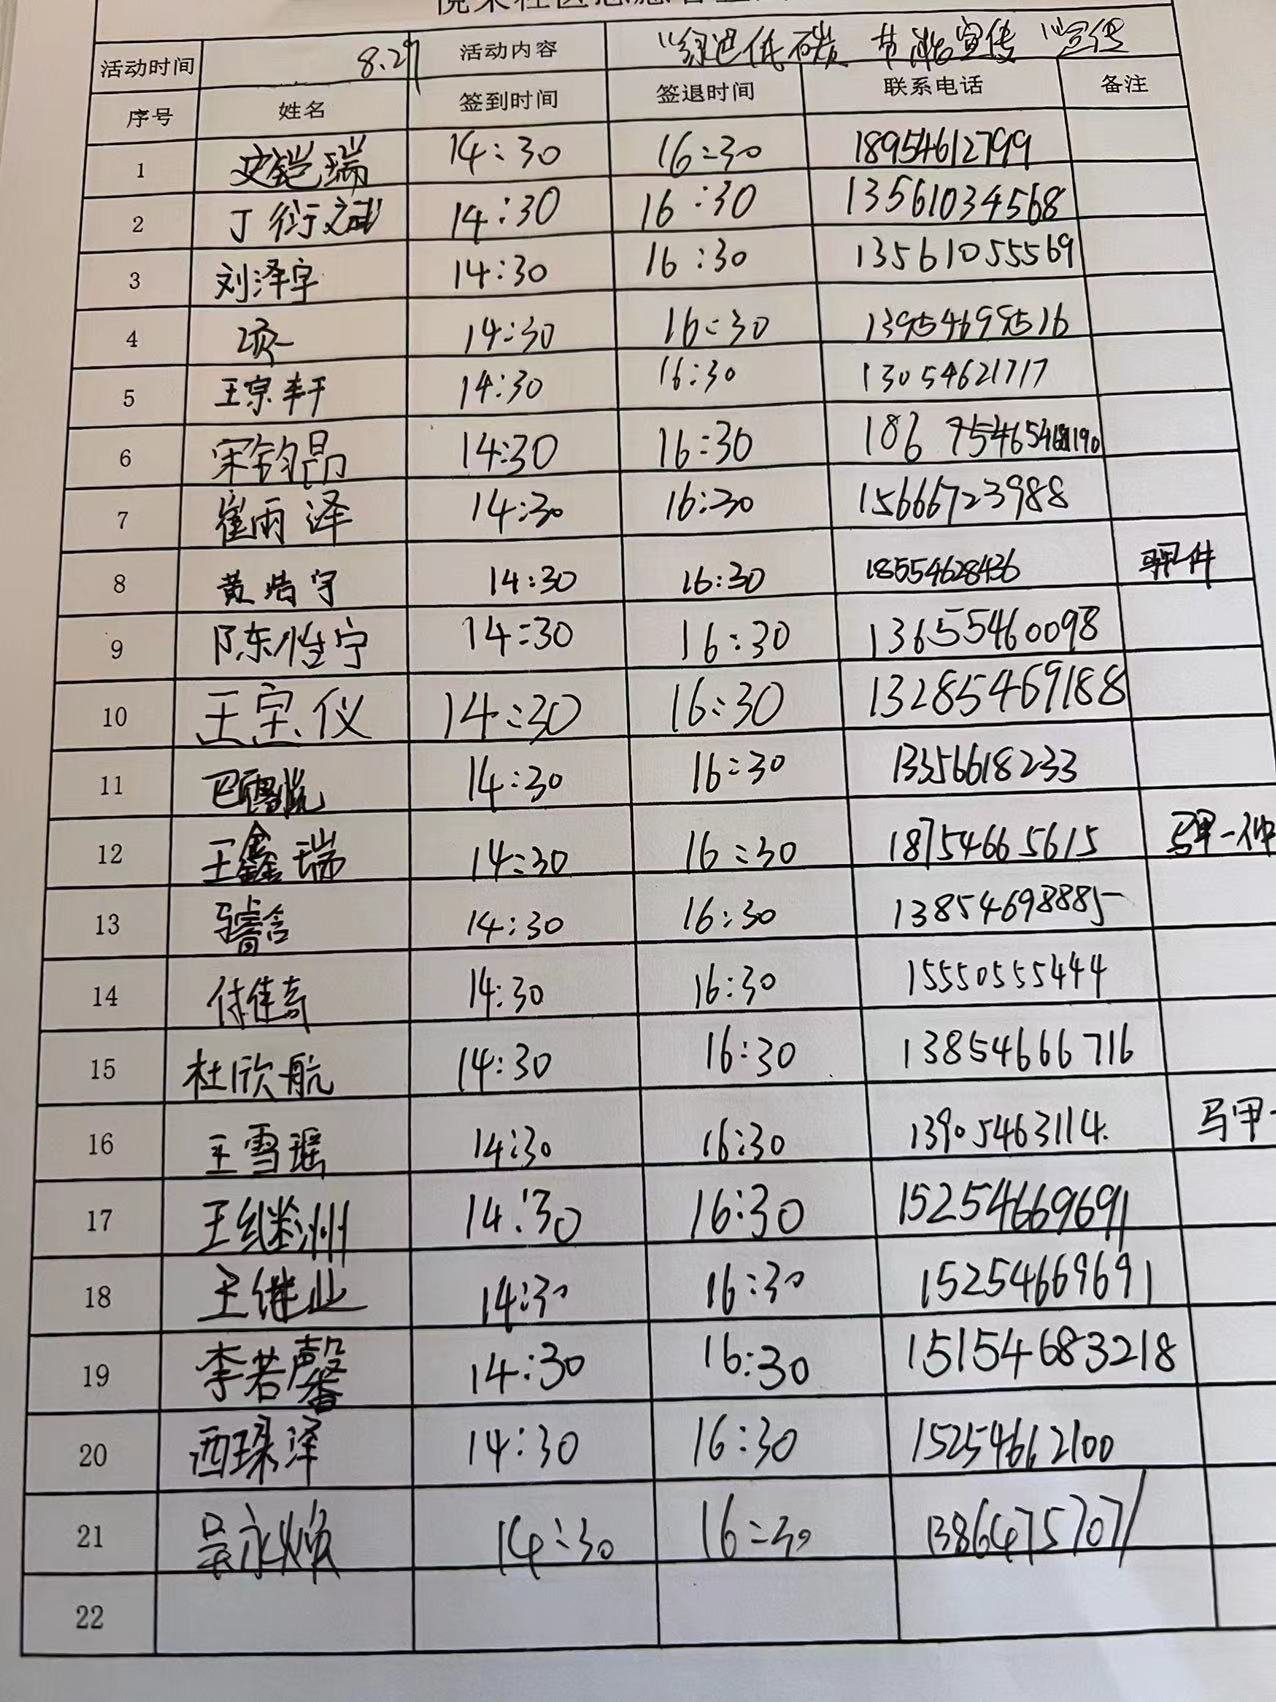 活动时间 8.29 活动内容 "绿迪低碳 节能宣传"宣传
序号 姓名 签到时间 签退时间 联系电话 备注
1 史铠瑞 14:30 16:30 18954612799
2 丁衍斌 14:30 16:30 13561034568
3 刘泽宇 14:30 16:30 13561055569
4 14:30 16:30 13954699516
5 王宗轩 14:30 16:30 13054621717
6 宋钧昂 14:30 16:30 186
7 崔雨泽 14:30 16:30 15666723988
8 黄浩宇 14:30 16:30 18554628436
9 陈怡宁 14:30 16:30 13655460098
10 王宝仪 14:30 16:30 13285469188
11 14:30 16:30 13356618233
12 王鑫瑞 14:30 16:30 18754665615 马甲一件
13 马睿含 14:30 16:30 13854698885
14 付佳奇 14:30 16:30 15550555444
15 杜欣航 14:30 16:30 13854666716
16 王雪瑶 14:30 16:30 13905463114. 马甲
17 王继洲 14:30 16:30 15254669691
18 王继业 14:30 16:30 15254669691
19 李若馨 14:30 16:30 15154683218
20 西琛泽 14:30 16:30 15254662100
21 吴永焕 14:30 16:30 13864757071
22